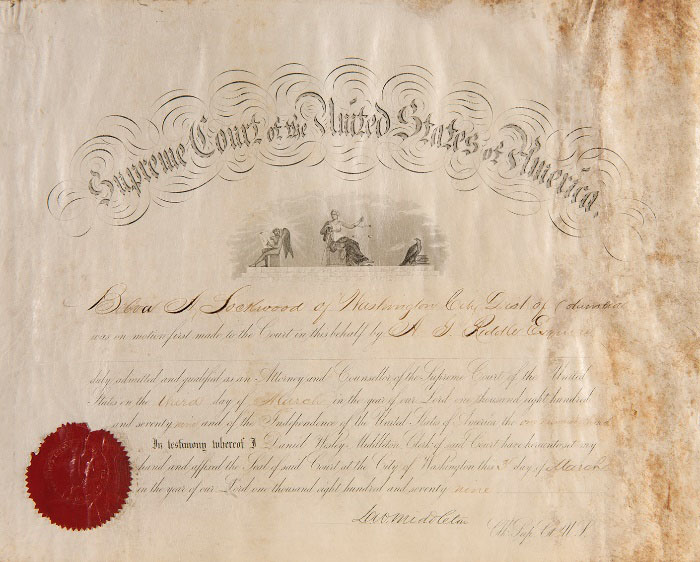 Supreme Court of the United States of America.
Belva A. Lockwood of Washington City, Dist. of Columbia
was on motion first made to the Court in this behalf by A. G. Riddle Esquire
duly admitted and qualified as an Attorney and Counsellor of the Supreme Court of the United
States on the third day of March in the year of our Lord one thousand eight hundred
and seventy nine and of the Independence of the United States of America the one
In testimony whereof I Daniel Wesley Middleton, Clerk of said Court have hereunto set my
hand and affixed the Seal of said Court at the City of Washington this 3 day of March
in the year of our Lord one thousand eight hundred and seventy nine
D W Middleton
C. Sup. Ct. U. S.